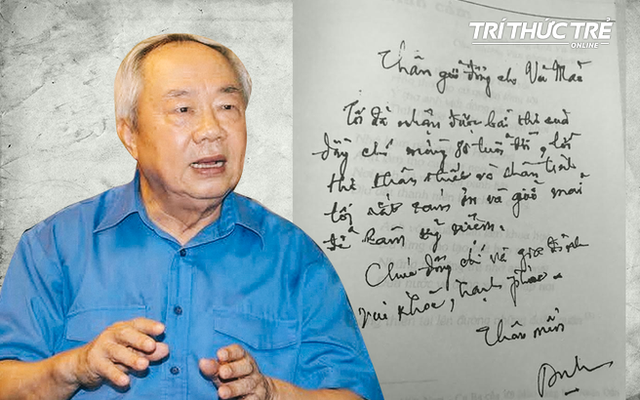 TRÍ THỨC TRẺ
ONLINE
Thân gửi đồng chí Vũ Mão
Tôi đã nhận được bài thơ của
đồng chí mừng 80 tuổi, lời
thơ thân thiết và chân tình
tôi rất cám ơn và giữ mãi
để làm kỷ niệm.
Chúc đồng chí và gia đình
vui khoẻ, hạnh phúc.
Thân mến